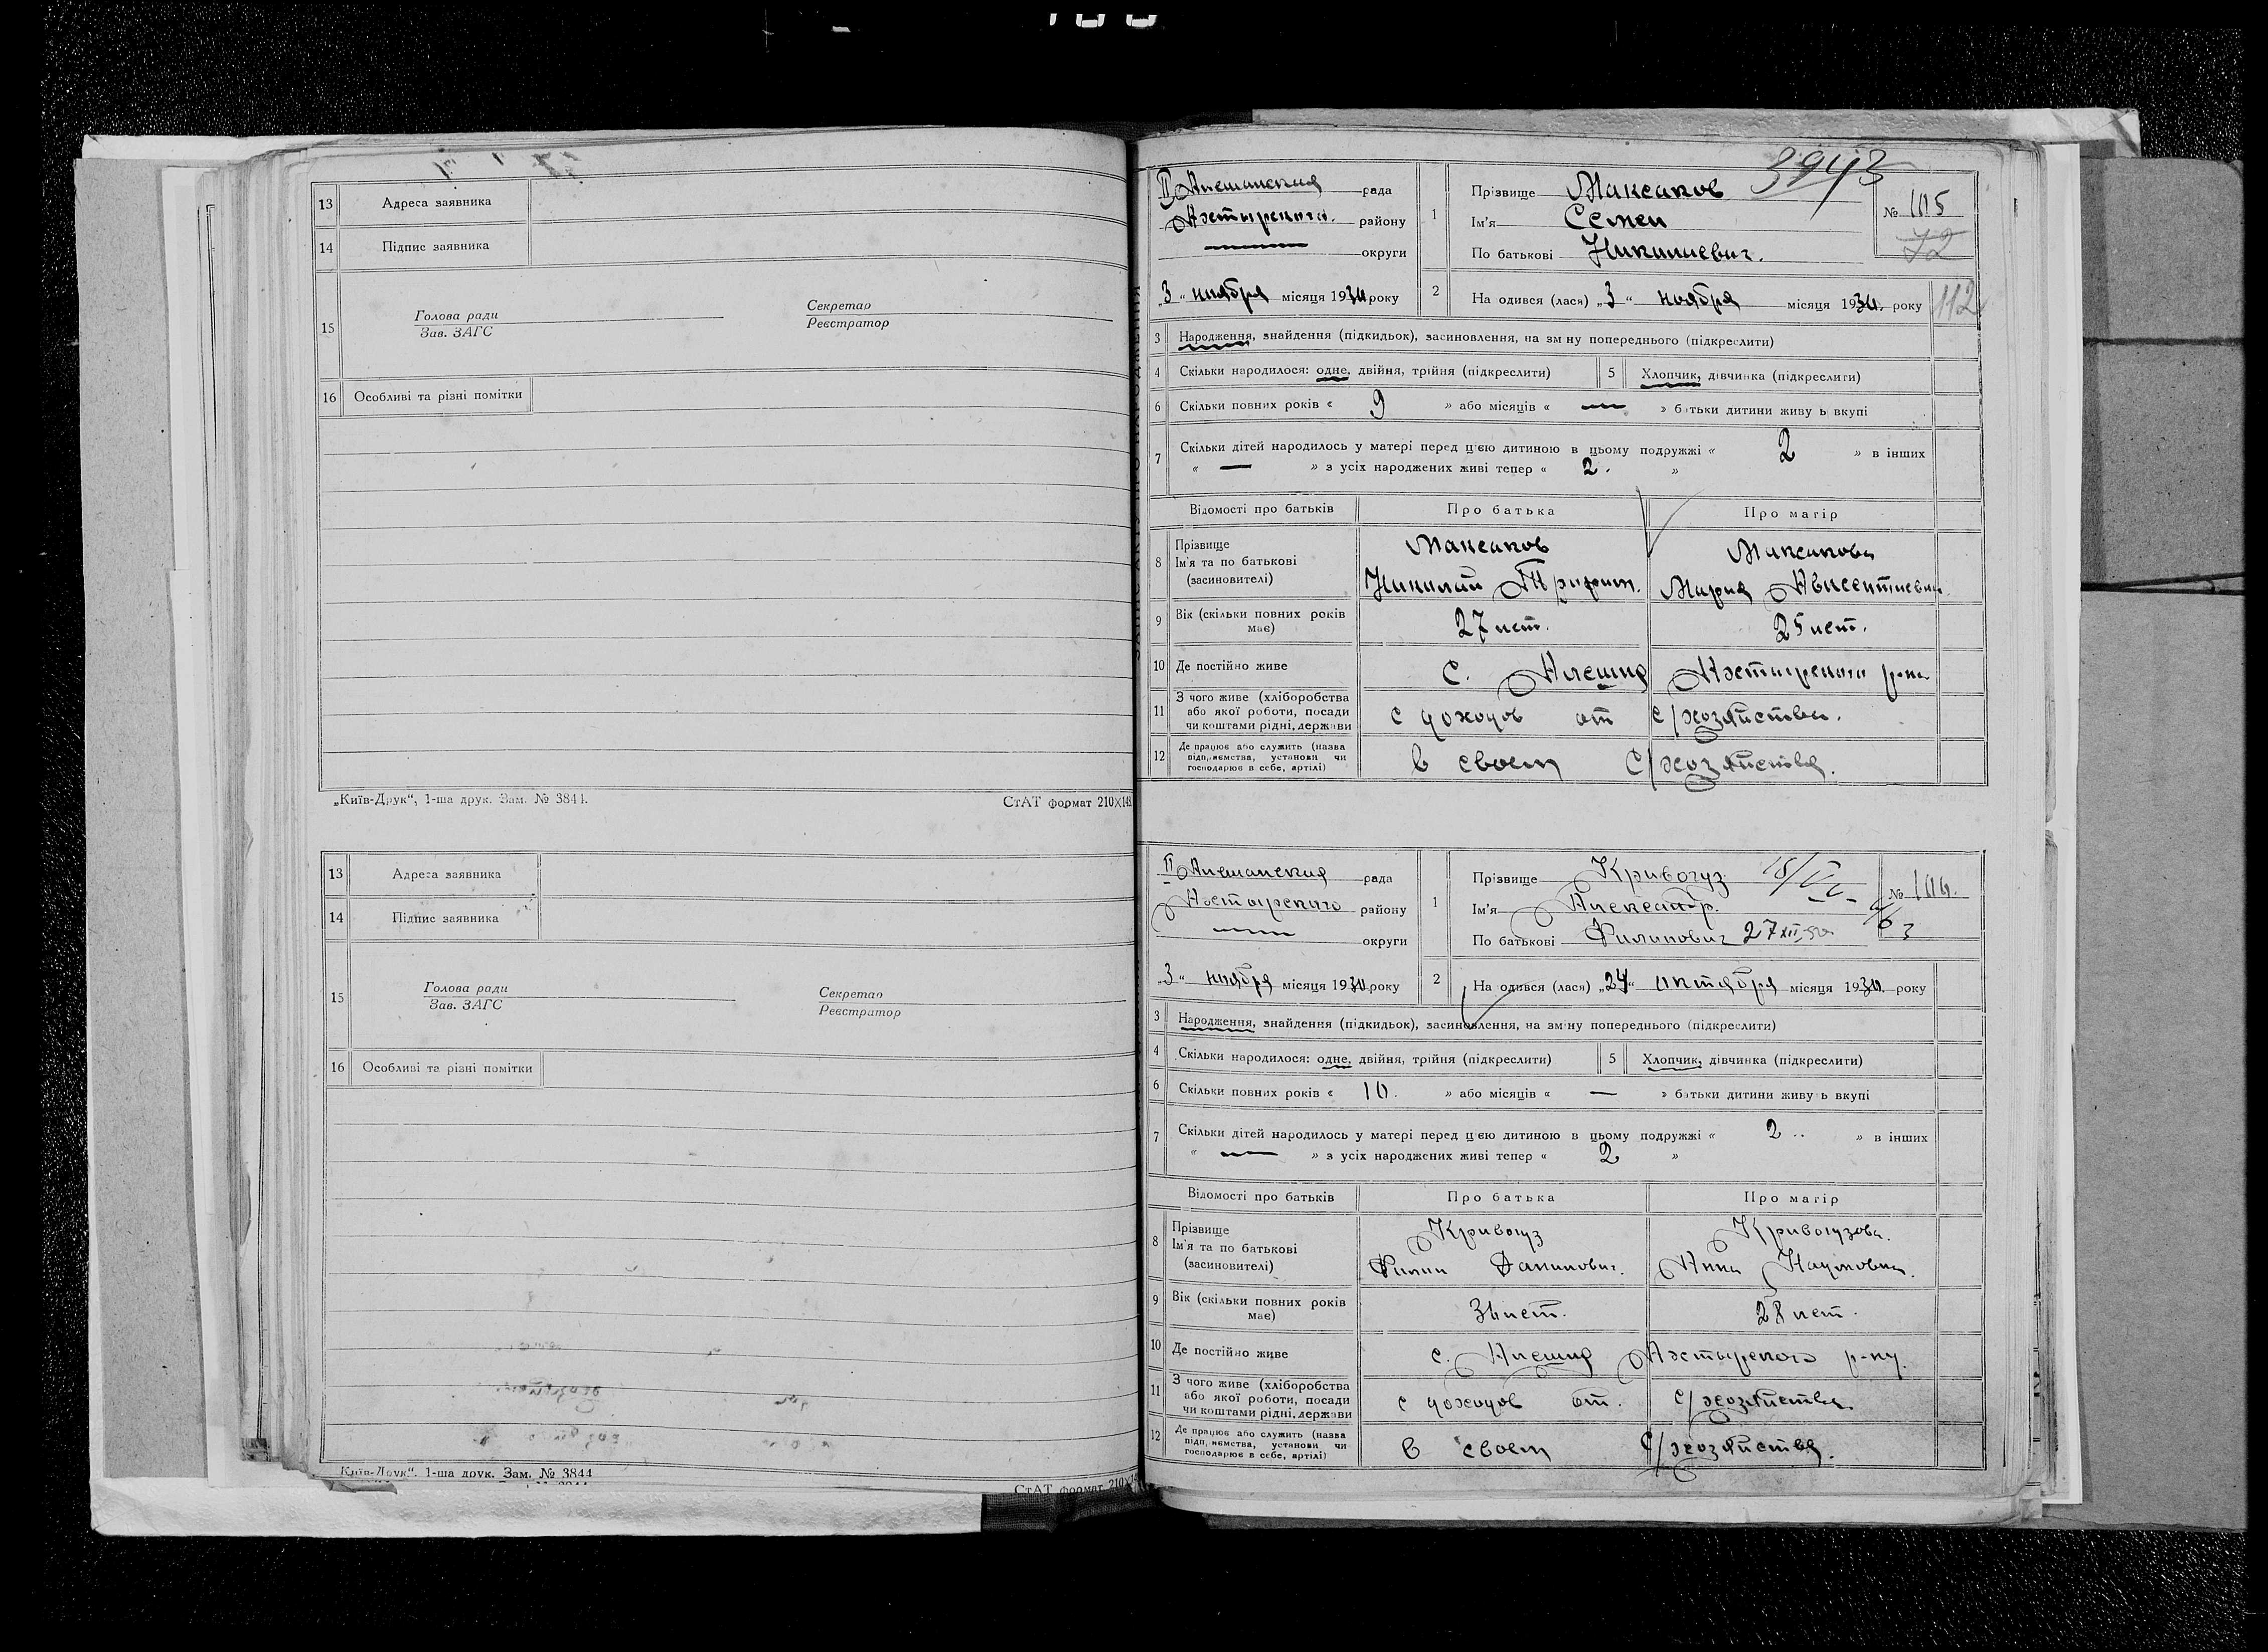 13 Адреса заявника
14 Підпис заявника
15 Голова ради Секретар
Зав. ЗАГС Реєстратор
16 Особливі та різні помітки
„Київ-Друк“, 1-ша друк. Зам. № 3844. СтАТ формат 210×148
13 Адреса заявника
14 Підпис заявника
15 Голова ради Секретар
Зав. ЗАГС Реєстратор
16 Особливі та різні помітки
Київ-Друк“. 1-ша друк. Зам. № 3844
СтАТ формат 210×14
3943
II Алешанская рада 1 Прізвище Максаков № 105
Ахтырского району Ім'я Семен 72
округи По батькові Николаевич.
„3“ ноября місяця 1930 року 2 На одився (лася) „3“ ноября місяця 1930. року 112
3 Народження, знайдення (підкидьок), засиновлення, на зм ну попереднього (підкреслити)
4 Скільки народилося: одне, двійня, трійня (підкреслити) 5 Хлопчик, дівчинка (підкреслити)
6 Скільки повних років « 9 » або місяців « — » батьки дитини живу ь вкупі
7 Скільки дітей народилось у матері перед цією дитиною в цьому подружжі « 2 » в інших
« — » з усіх народжених живі тепер « 2. »
Відомості про батьків Про батька Про матір
8 Прізвище Максаков Максакова
Ім'я та по батькові
(засновителі) Николай Трифон. Мария Авксентиевна
9 Вік (скільки повних років має) 27 лет. 25 лет.
10 Де постійно живе с. Алешня Ахтырского р-на
11 З чого живе (хліборобства
або якої роботи, посади с доходов от с/хозяйства.
чи коштами рідні, держави
12 Де працює або служить (назва
підприємства, установи чи в своем с/хозяйстве.
господарює в себе, артілі)
II Алешанская рада 1 Прізвище Кривогуз № 104.
Ахтырского району Ім'я Александр.
округи По батькові Филипович 27 XII 50
„3“ ноября місяця 1930 року 2 На одився (лася) „24“ октября місяця 1930. року
3 Народження, знайдення (підкидьок), засиновлення, на зм ну попереднього (підкреслити)
4 Скільки народилося: одне, двійня, трійня (підкреслити) 5 Хлопчик, дівчинка (підкреслити)
6 Скільки повних років « 10. » або місяців « — » батьки дитини живу ь вкупі
7 Скільки дітей народилось у матері перед цією дитиною в цьому подружжі « 2 » в інших
« — » з усіх народжених живі тепер « 2 »
Відомості про батьків Про батька Про матір
8 Прізвище Кривогуз Кривогузова.
Ім'я та по батькові
(засиновителі) Филип Данилович. Анна Наумовна.
9 Вік (скільки повних років має) лет. 28 лет.
10 Де постійно живе с. Алешня Ахтырского р-ну.
11 З чого живе (хліборобства
або якої роботи, посади с доходов от. с/хозяйства
чи коштами рідні, держави
12 Де працює або служить (назва
підприємства, установи чи в своем с/хозяйстве.
господарює в себе, артілі)